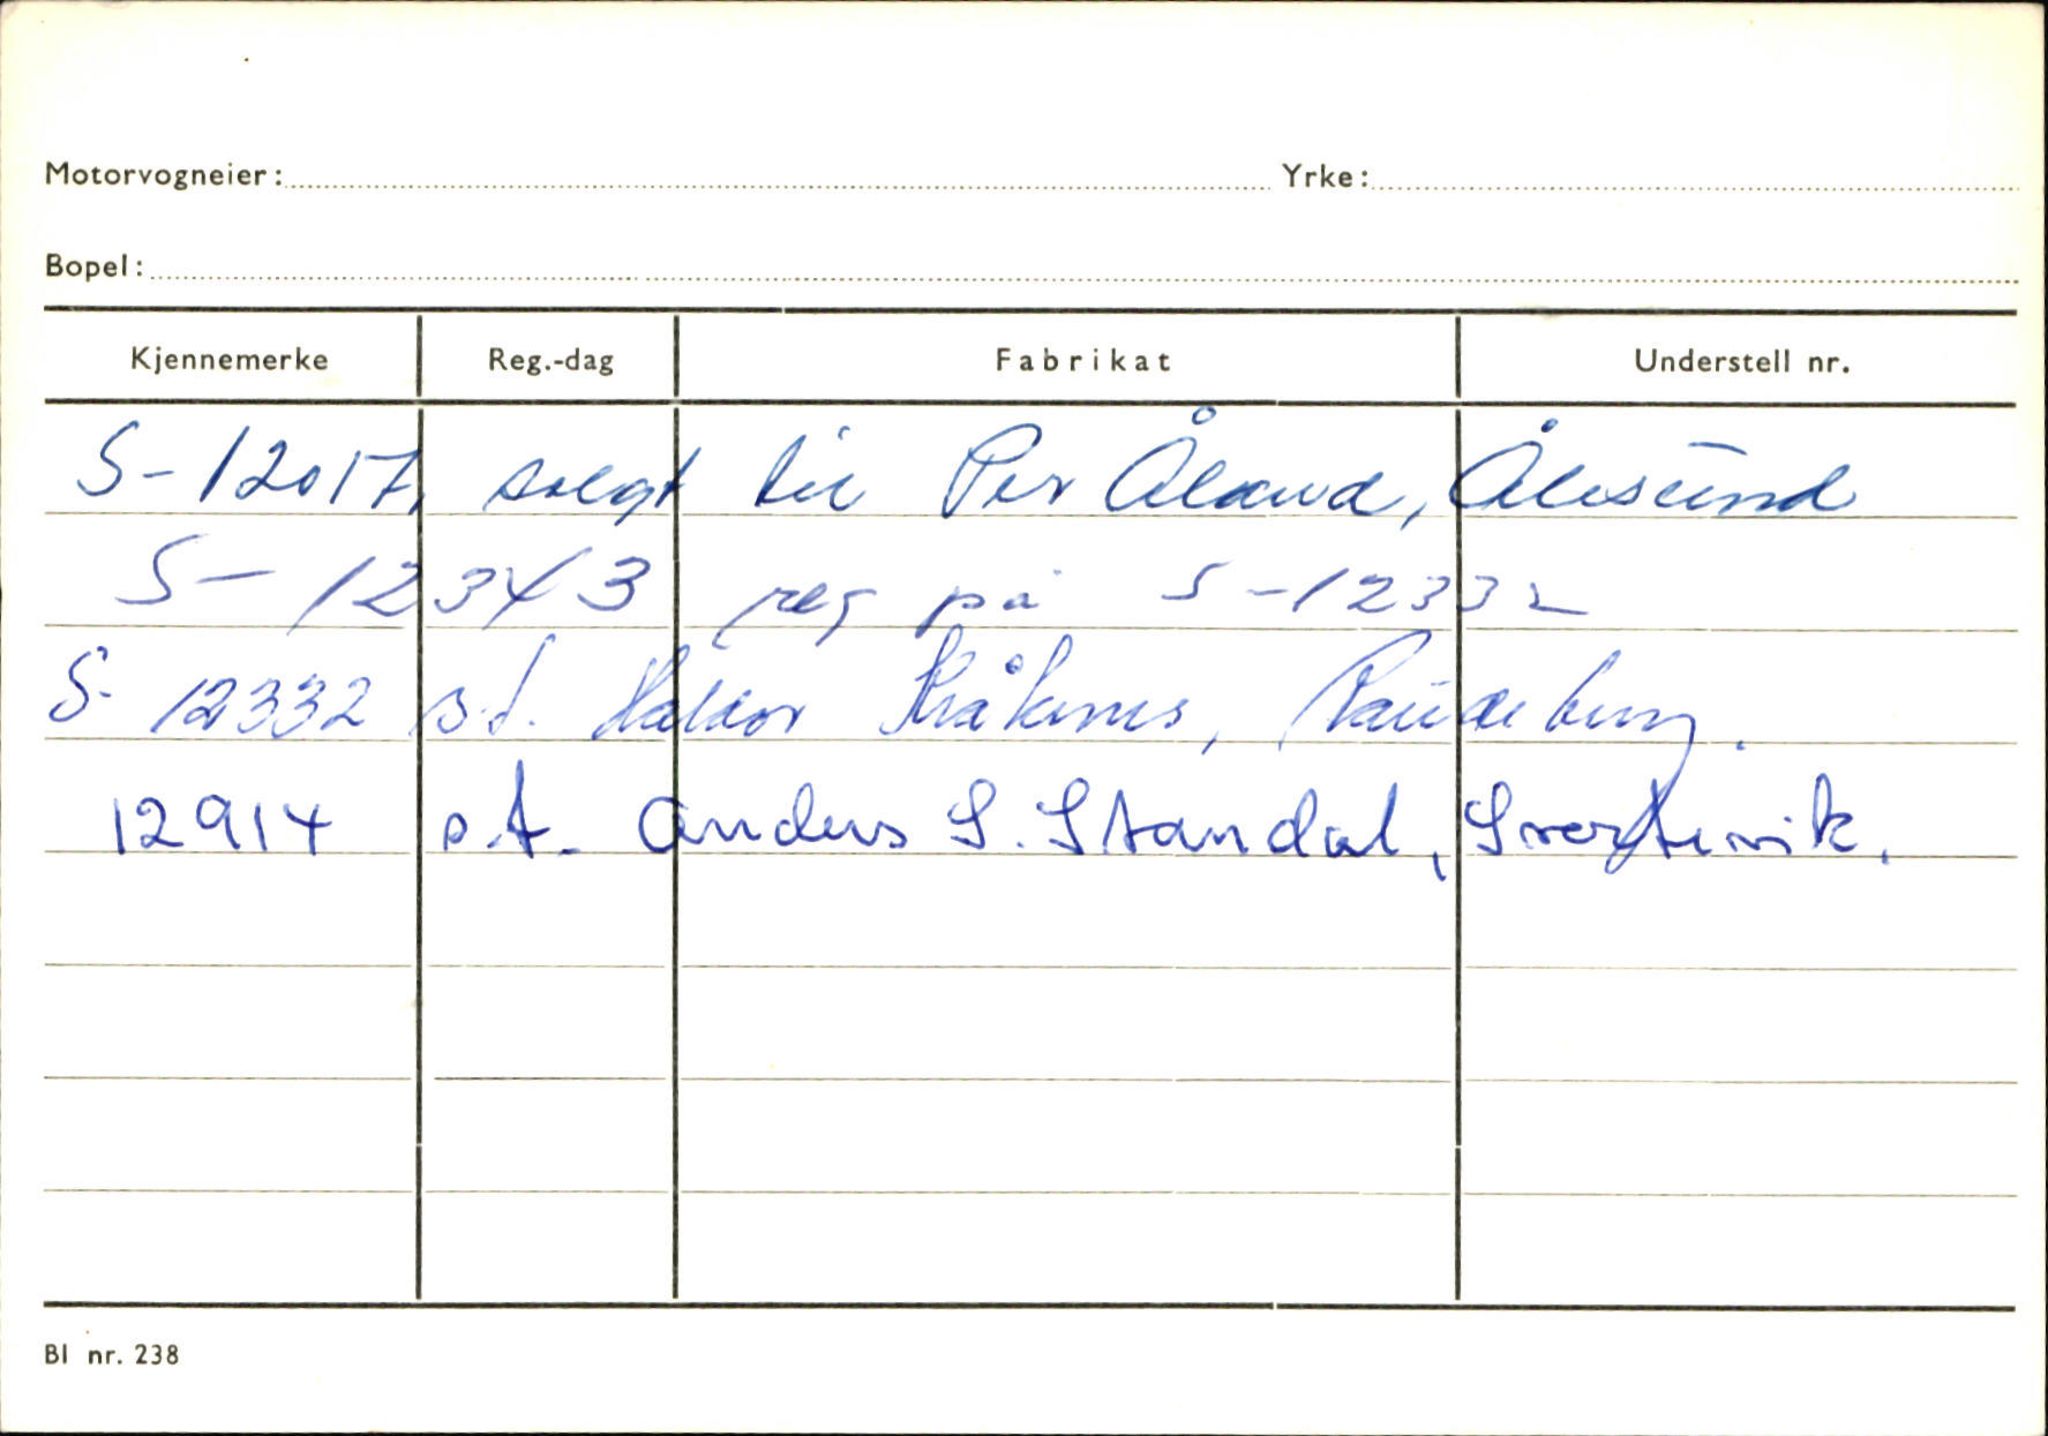 Motorvogneier: Yrke:
Bopel:
Kjennemerke Reg.-dag Fabrikat Understell nr.
S-12017, solgt til Per Åland, Ålesund
S-12343 reg på S-12332
S-12332 s.t. Halvor Kråkenes, Raudeberg.
12914 s.t. Anders S. Standal, Svortevik.
Bl nr. 238